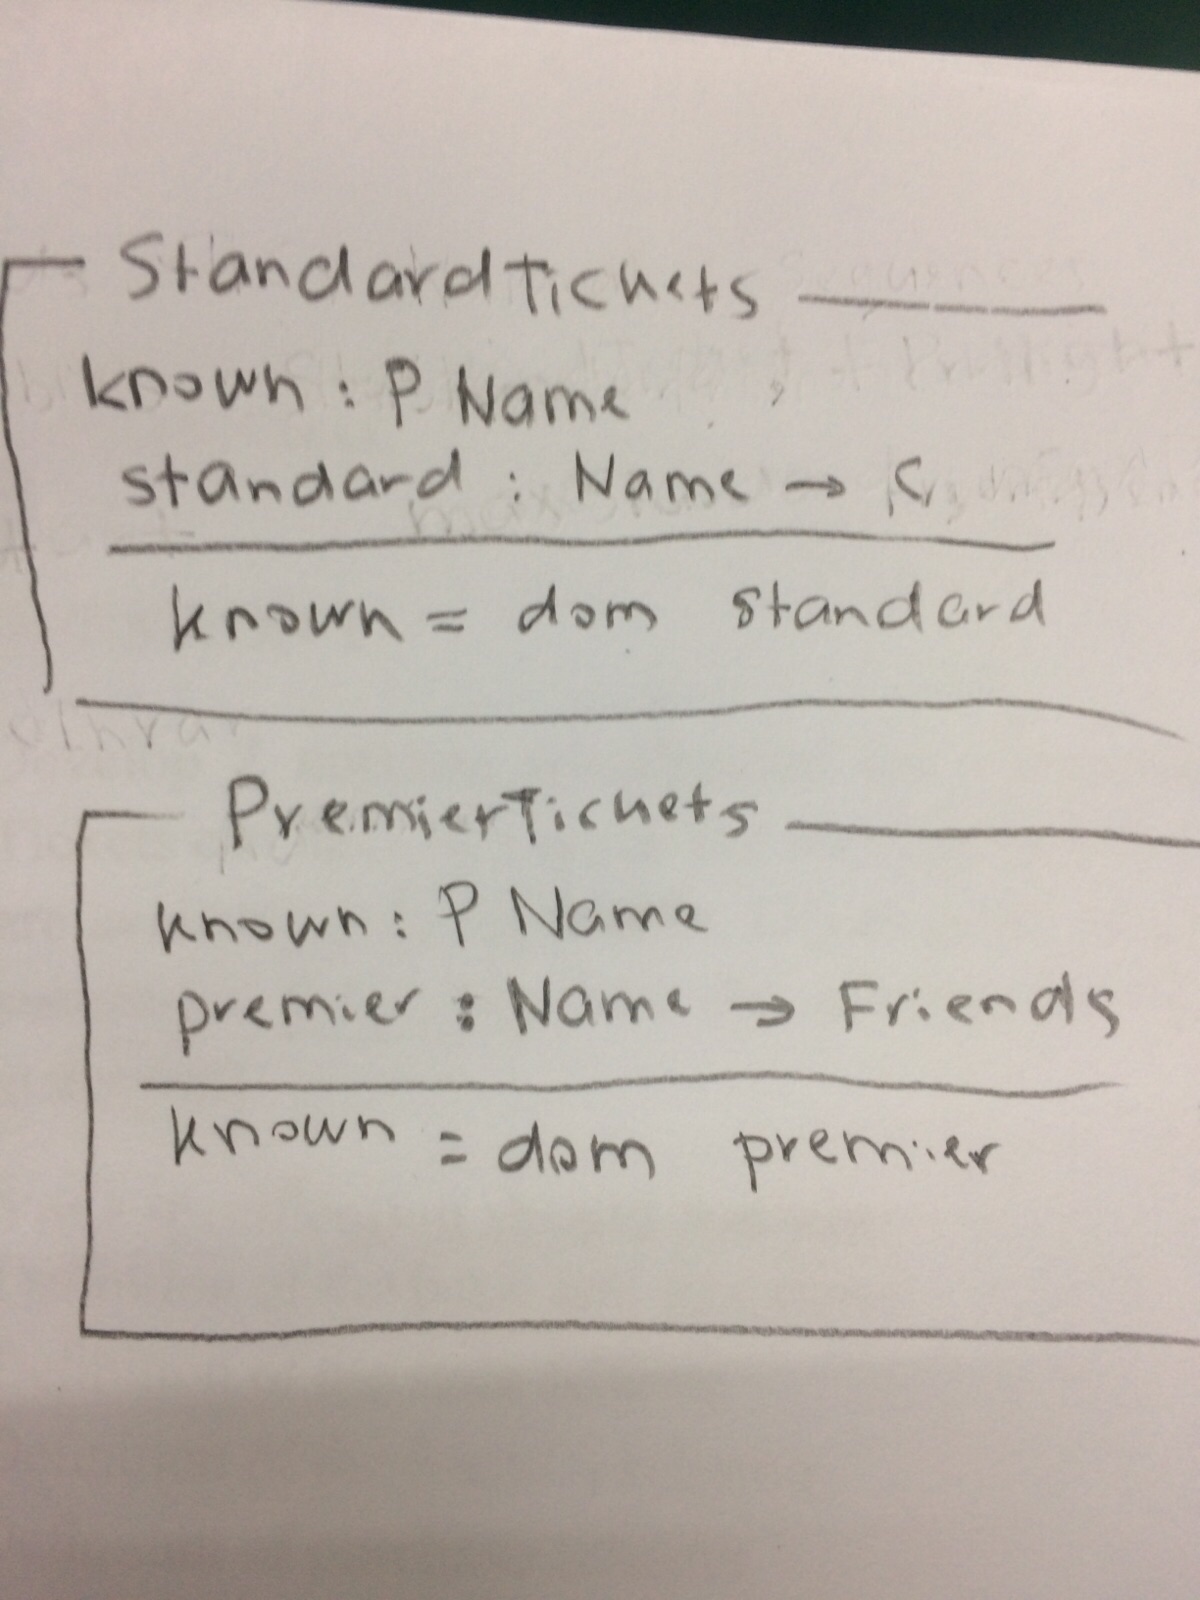 StandardTickets
known : P Name
standard : Name → S
known = dom standard
PremierTickets
known : P Name
premier : Name → Friends
known = dom premier